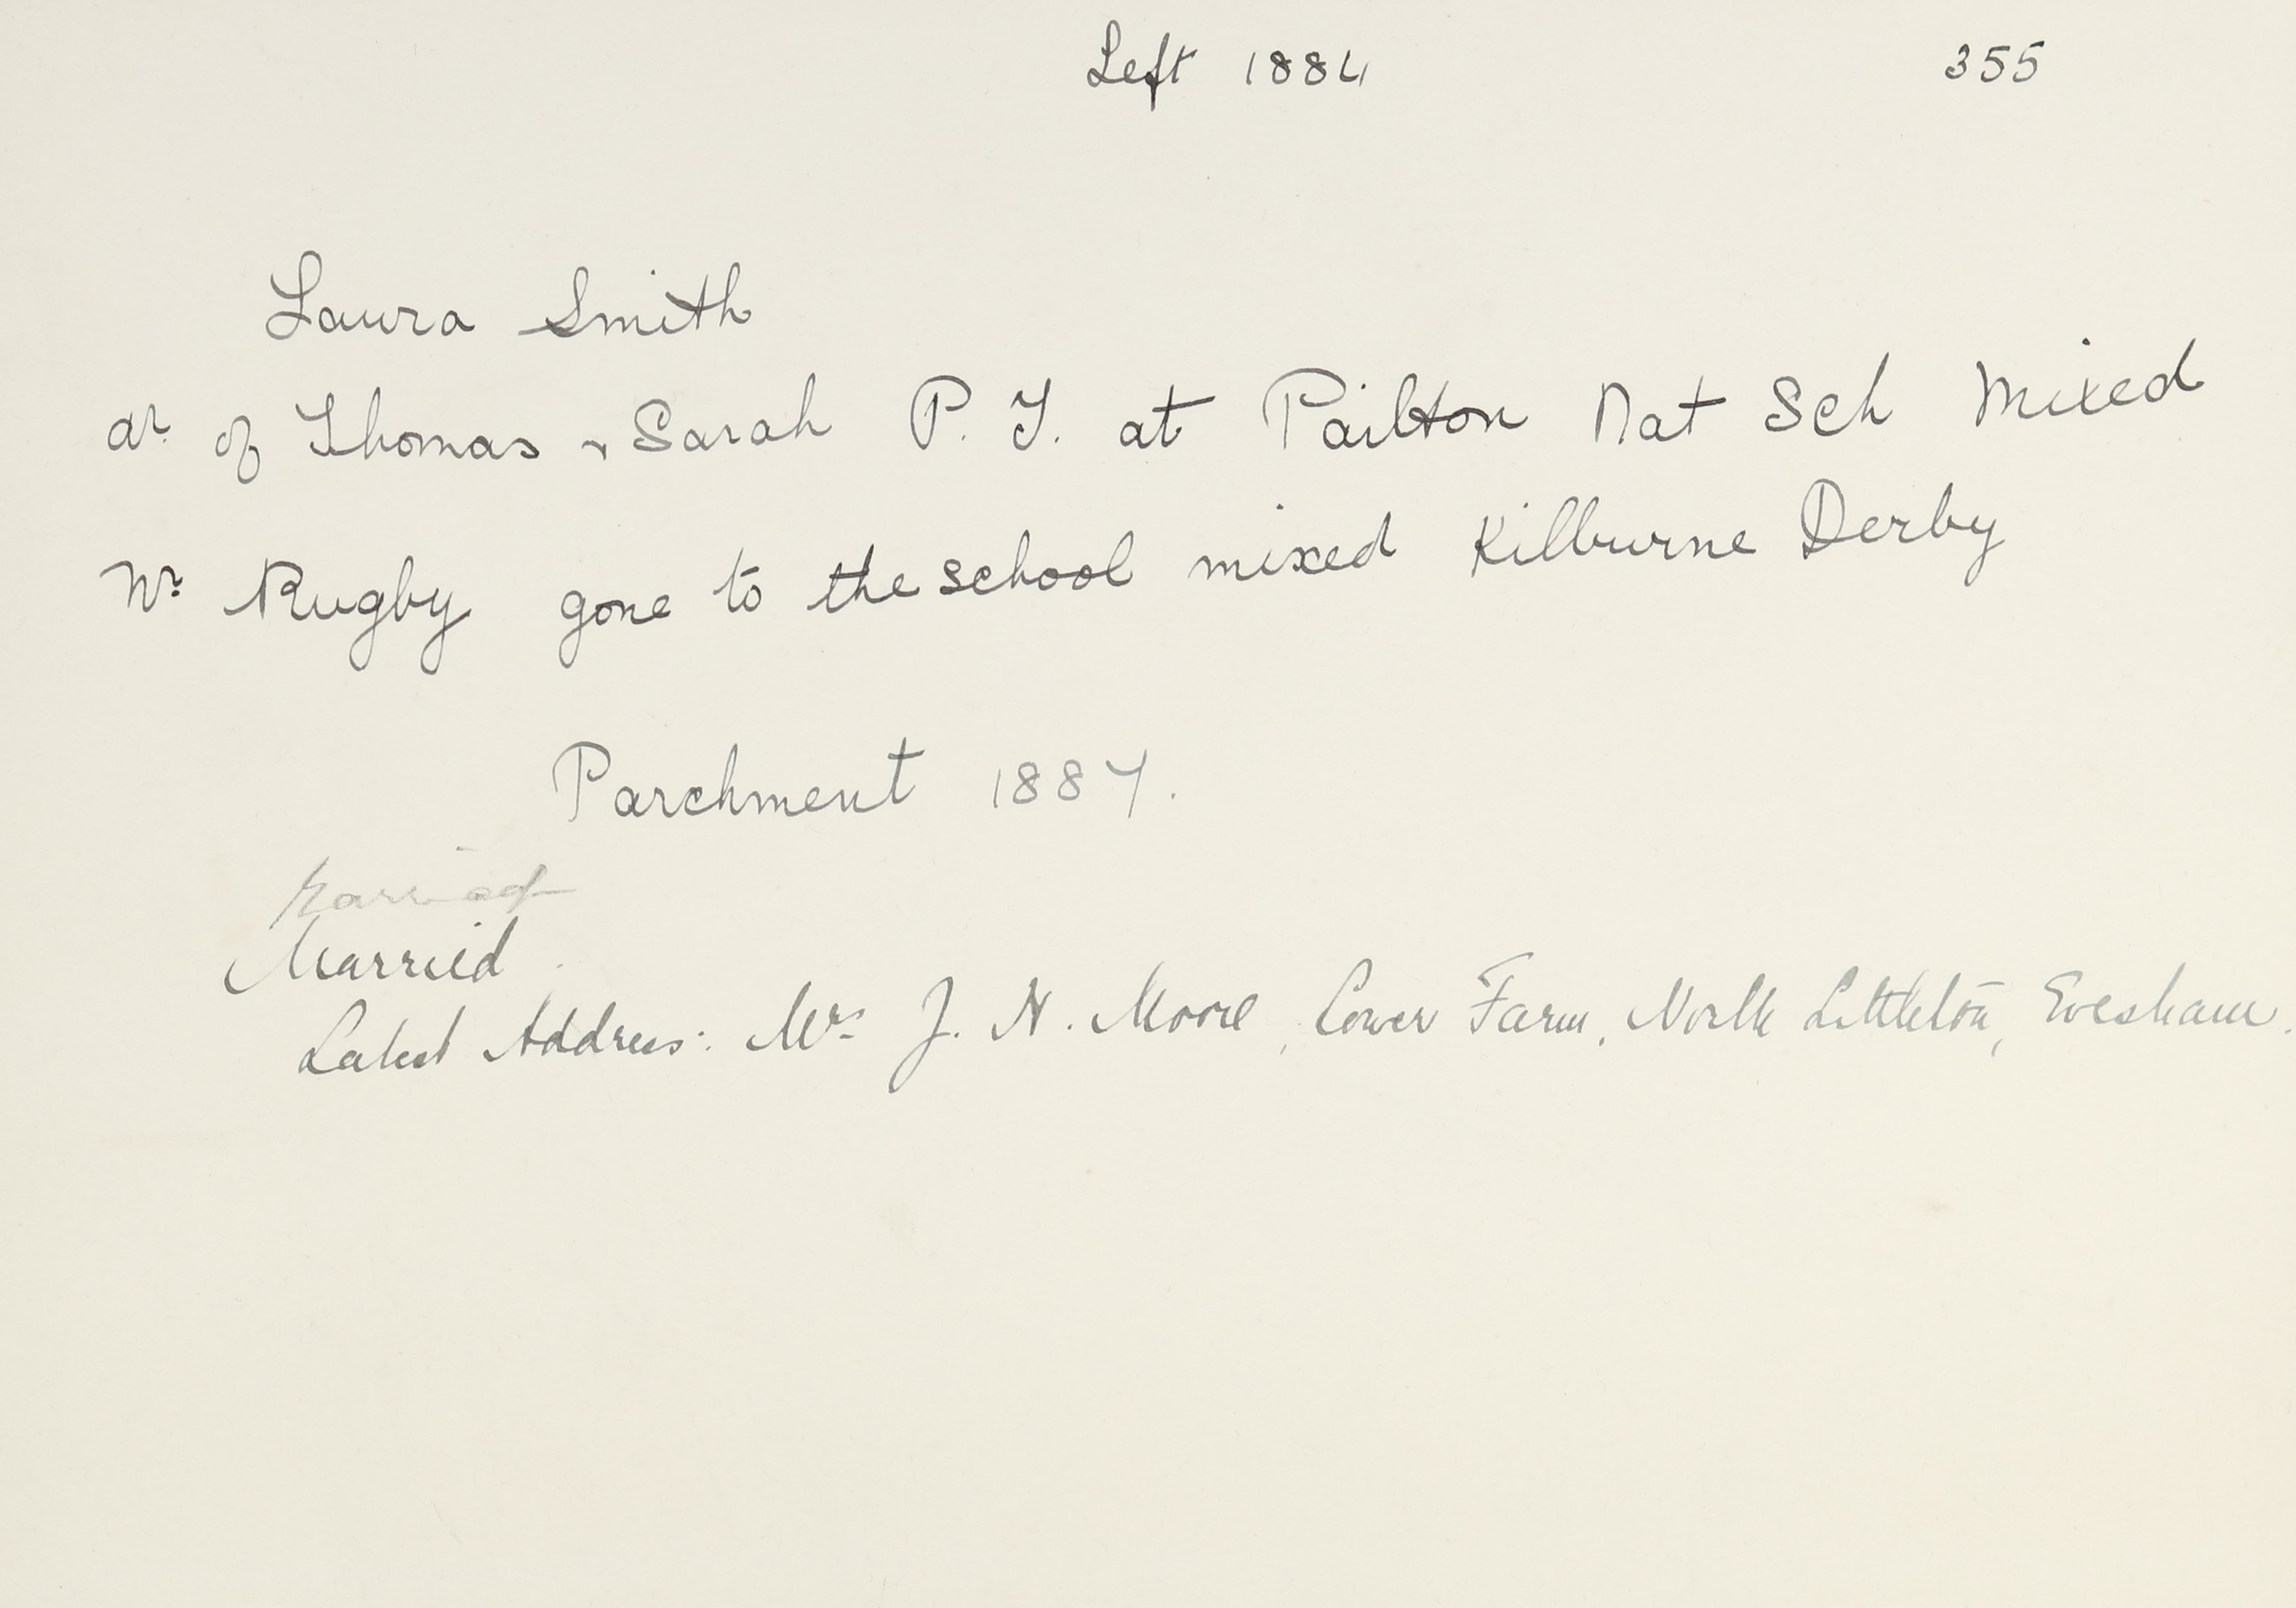 Left 1884 355
Laura Smith
dr. of Thomas & Sarah P. T. at Pailton Nat Sch Mixed
Nr Rugby gone to the school mixed Kilburne Derby
Parchment 1887.
Married
Married.
Latest Address: Mrs J. N. Moore, Lower Farm, North Littleton, Evesham.